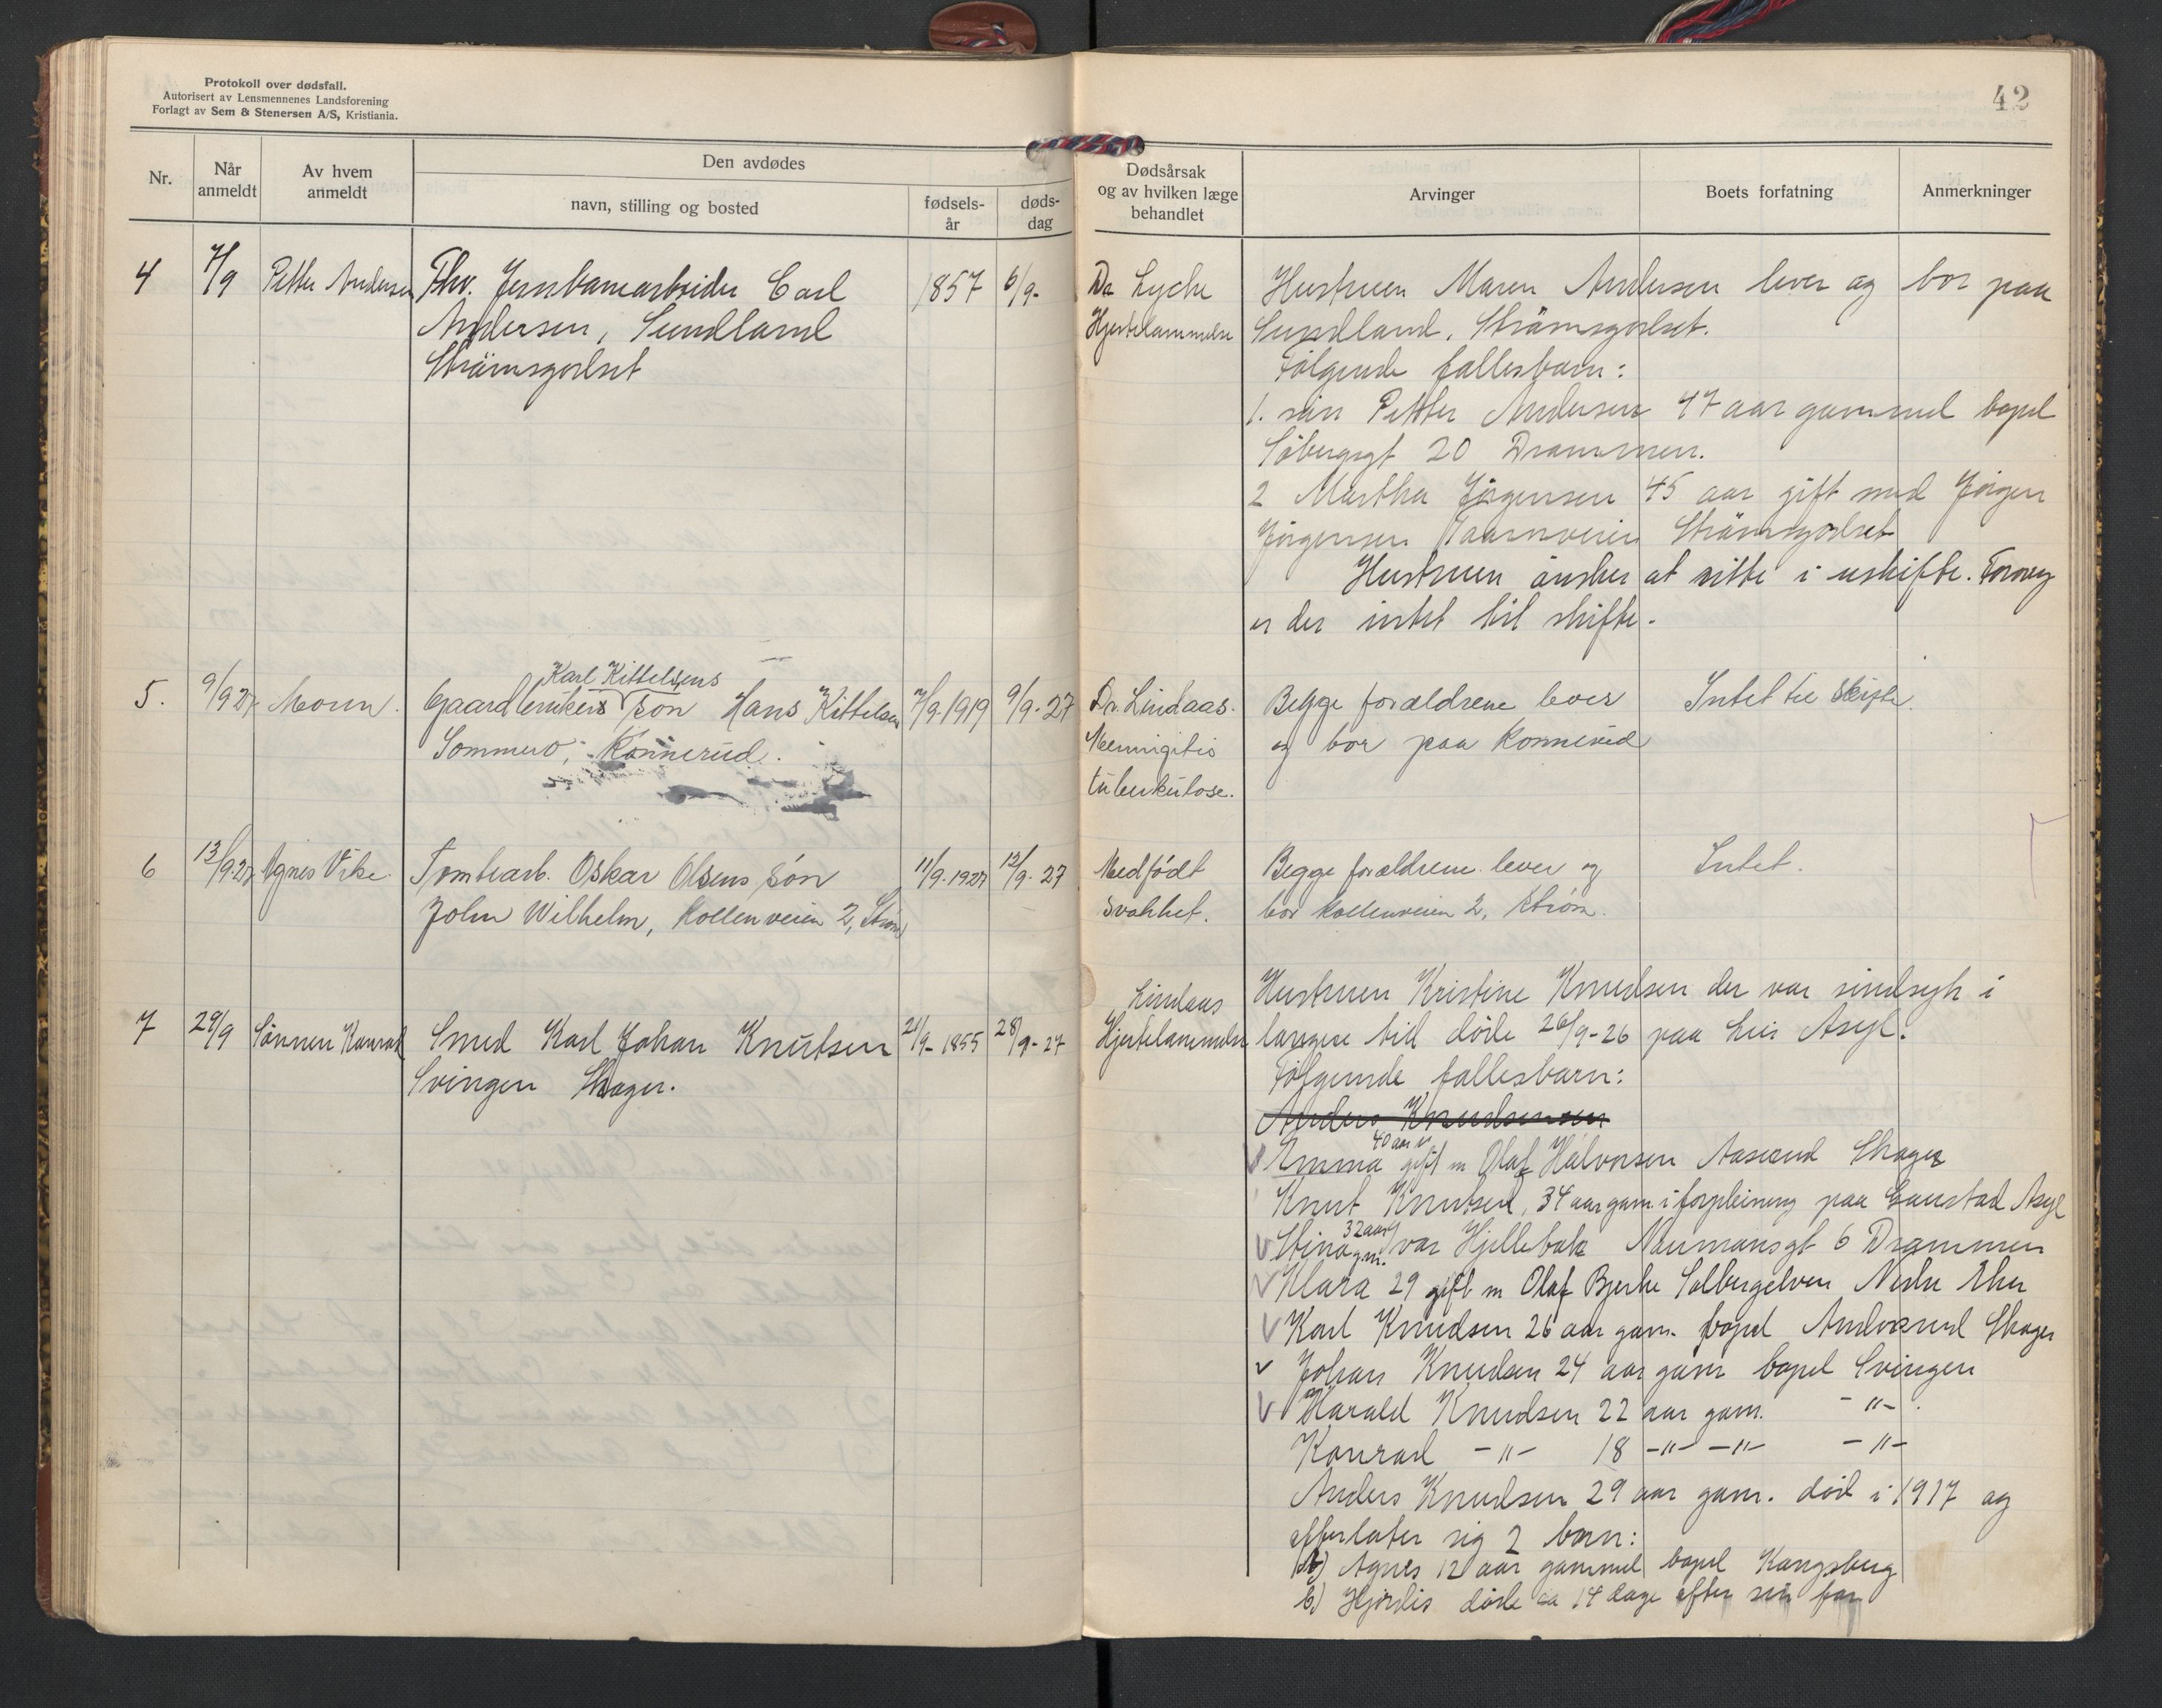 Protokoll over dødsfall.
Autorisert av Lensmennenes Landsforening
Forlagt av Sem & Stenersen A/S, Kristiania.
42
Nr.
Når anmeldt
Av hvem anmeldt
Den avdødes
navn, stilling og bosted
fødsels-år
døds-dag
Dødsårsak og av hvilken læge behandlet
Arvinger
Boets forfatning
Anmerkninger
4
7/9
Petter Andersen
Fhv. Jernbanearbeider Carl
Andersen, Sundland
Strömsgodset
1857
6/9-
Dr Lyche
Hjertelammelse
Hustruen Maren Andersen lever og bor paa
Sundland, Strömsgodset.
Følgende fallesbarn:
1. sön Petter Andersen 47 aar gammel bopel
Söbergsgt 20 Drammen.
2 Martha Jörgensen 45 aar gift med Jörgen
Jörgensen Taarnveien Strömsgodset
Hustruen önsker at sitte i uskifte. Forövrig
er der intet til skifte.
5.
9/9 27
Moren.
Karl Kittelsens
Gaardbrukers søn Hans Kittelsen
Sommero, Konnerud.
7/9-1919
9/9-27
Dr. Lindaas.
Mennigitis
tuberkulose.
Begge forældrene lever
og bor paa Konnerud
Intet til Skifte.
6
13/9 27
Agnes Vike
Tomtearb. Oskar Olsens søn
John Wilhelm, Kollenveien 2, Strøm
11/9-1927
12/9-27
Medfödt
svakhet.
Begge forældrene lever og
bor Kollenveien 2, Strøm.
Intet.
7
29/9
Sönnen Konrad
Smed Karl Johan Knutsen
Svingen Skoger.
21/9-1855
28/9-27
Lindaas
Hjertelammelse
Hustruen Kristine Knudsen der var sindsyk i
længere tid döde 26/9-26 paa Lier Asyl.
Følgende fallesbarn:
Anders Knudsen
40 aar
Emma gift m Olaf Halvorsen Aaserud Skoger
Knut Knutsen, 34 aar gam. i forpleining paa Gaustad Asyl
32 aar
Stina g.m. Ivar Hjellebak Naumansgt 6 Drammen
Klara 29 gift m Olaf Bjerke Solbergelven Nedre Eker
Karl Knudsen 26 aar gam. bopel Andorsrud Skoger
Johan Knudsen 24 aar gam bopel Svingen
Harald Knudsen 22 aar gam. -"-
Konrad -"- 18 -"- -"- -"-
Anders Knudsen 29 aar gam. död i 1917 og
efterlater sig 2 barn:
a) Agnes 12 aar gammel bopel Kongsberg
b) Hjördis döde ca 14 dage efter sin far